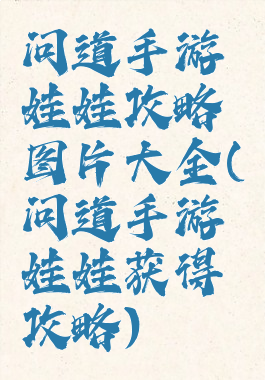 问道手游
娃娃攻略
图片大全(
问道手游
娃娃获得
攻略)